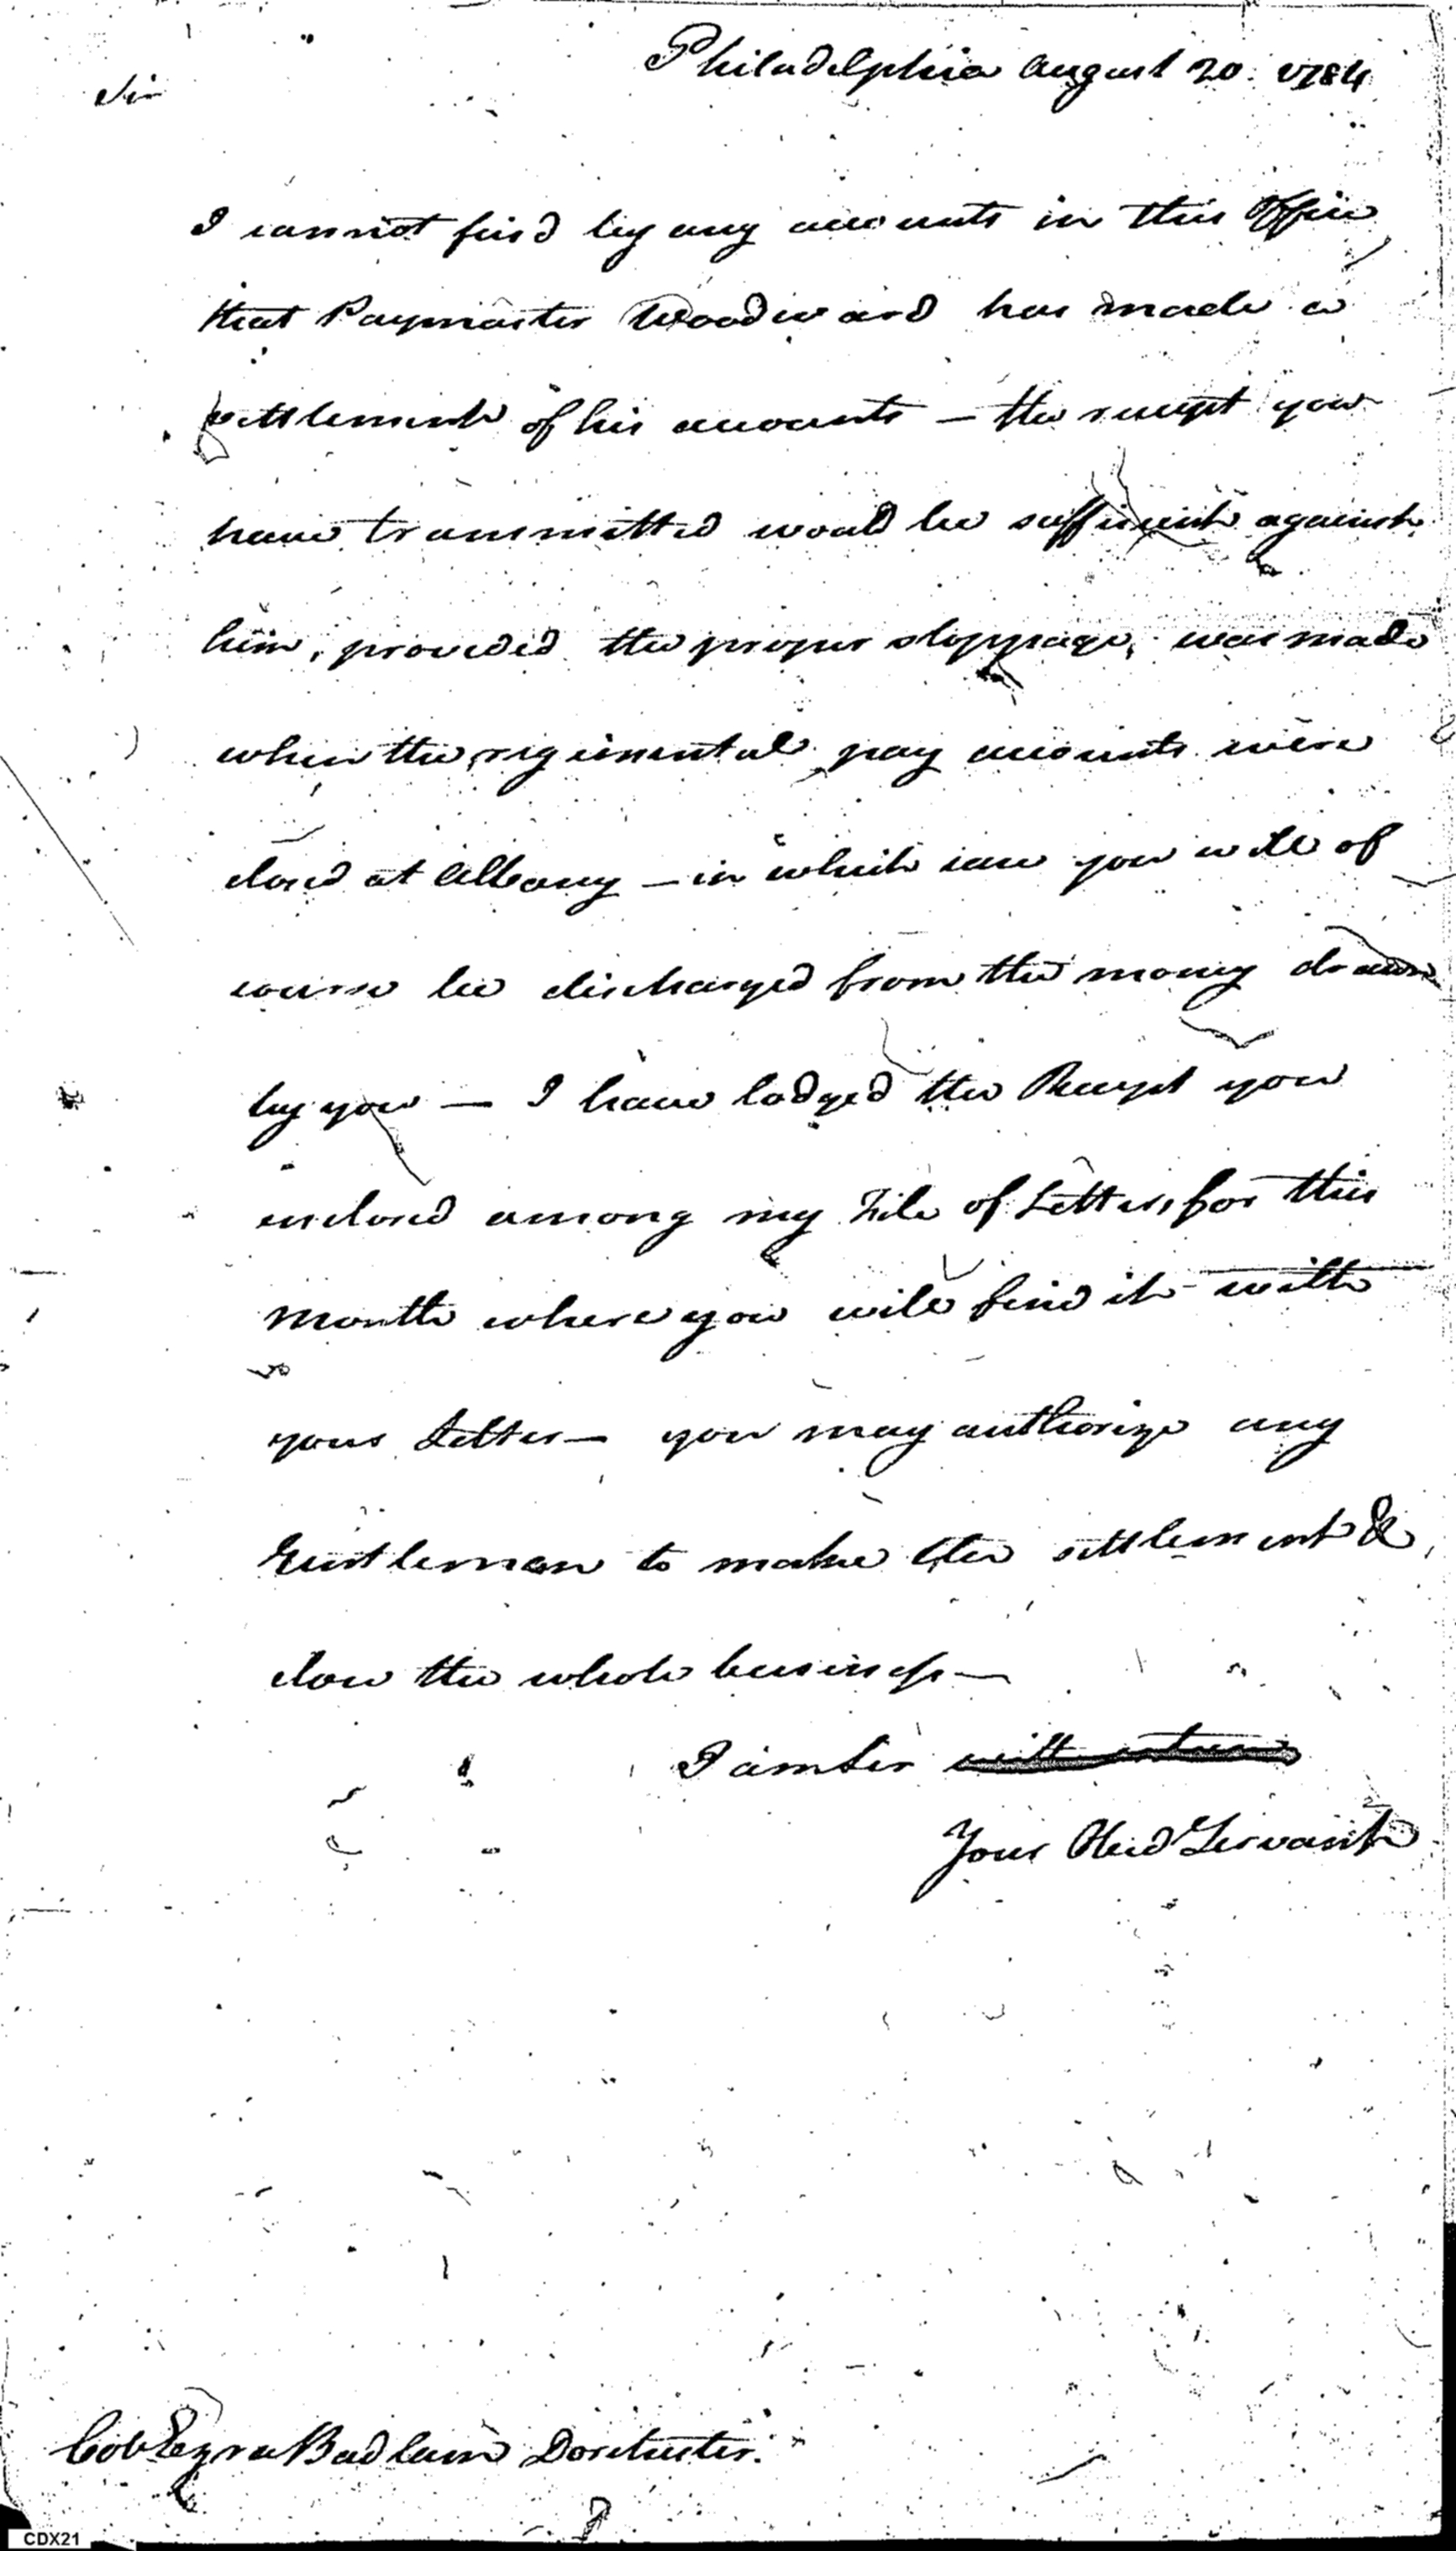 Philadelphia August 20. 1784
Sir
I cannot find by any accounts in this Office
that Paymaster Woodward has made a
settlement of his accounts — the receipt you
have transmitted would be sufficient against
him, provided the proper stoppage, was made
when the regimental pay accounts were
closed at Albany — in which case you will of
course be discharged from the money drawn
by you — I have lodged the Receipt you
enclosed among my File of Letters, for this
Month where you will find it with
your Letter — you may authorize any
Gentleman to make the settlement &
close the whole business —
I am Sir
Your Obed Servant
Col Ezra Badlam Dorchester.
CDX21